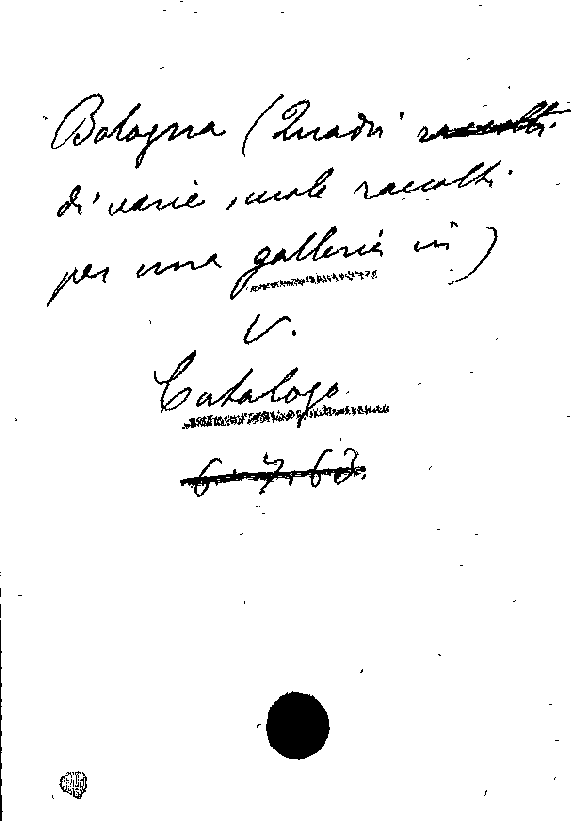 Bologna (Quadri raccolti
di varie scuole raccolti
per una galleria in)
V.
Catalogo
6.7.63.